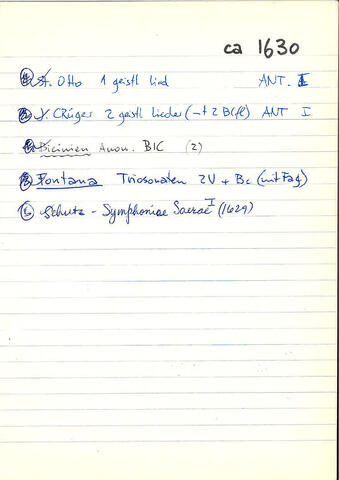 ca 1630
St. Otto 1 geistl Lied ANT. I
J. Crüger 2 geistl Lieder (→ + 2 Blfl) ANT I
Bicinien Anon. BIC (2)
Fontana Triosonaten 2V + Bc (mit Fag)
Schutz - Symphoniae Sacrae I (1629)